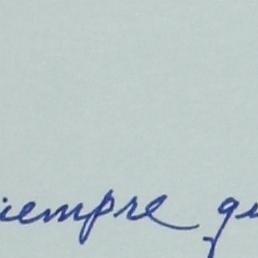 iempre qu